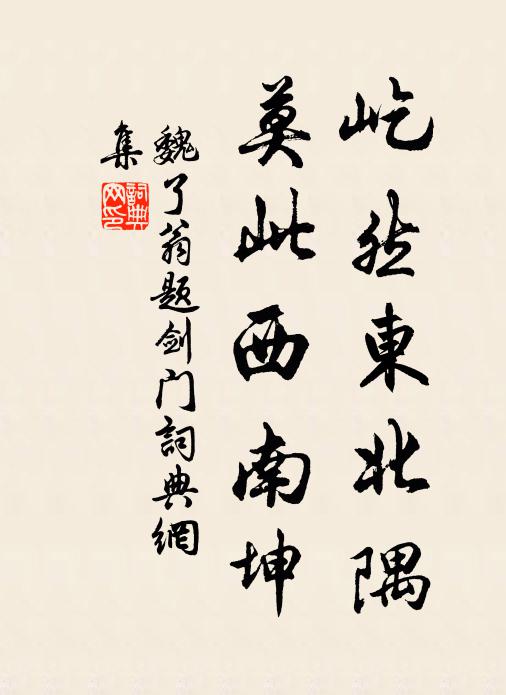 屹然東北隅
莫此西南坤
魏了翁題剑门詞典網
集
詞典网印